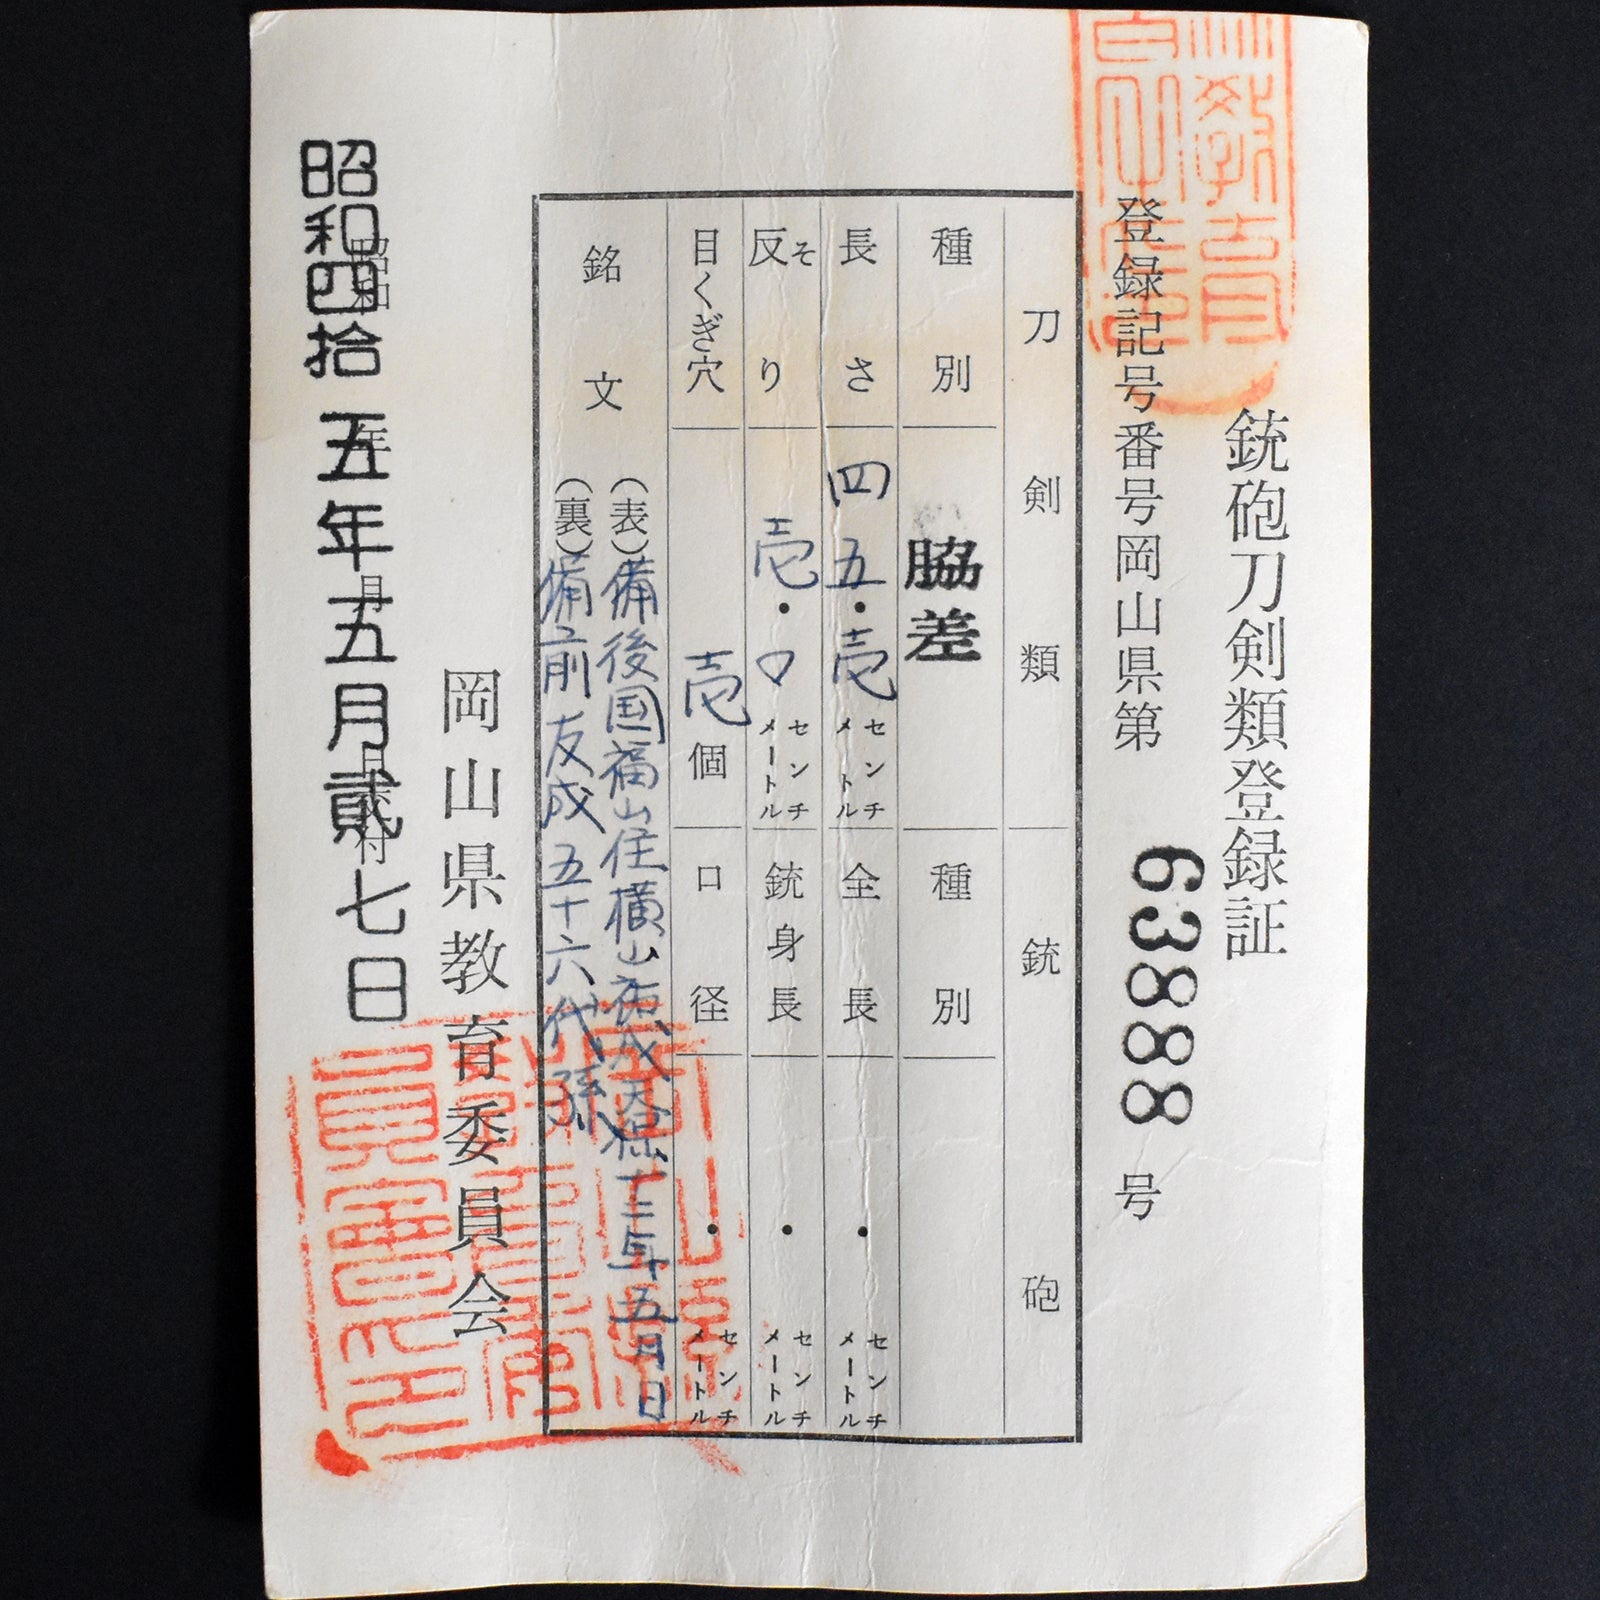 銃砲刀剣類登録証
登録記号番号岡山県第 63888 号
刀剣類 銃砲
種別 脇差 種別
長さ 四五・壱 センチメートル 全長 ・ センチメートル
反り そ 壱・〇 センチメートル 銃身長 ・ センチメートル
目くぎ穴 壱個 口径 ・ センチメートル
銘文 (表)備後国福山住横山祐成天保十二年五月日
(裏)備前友成五十六代孫
岡山県教育委員会
昭和四拾五年五月貳七日
昭和 年 月 日交付